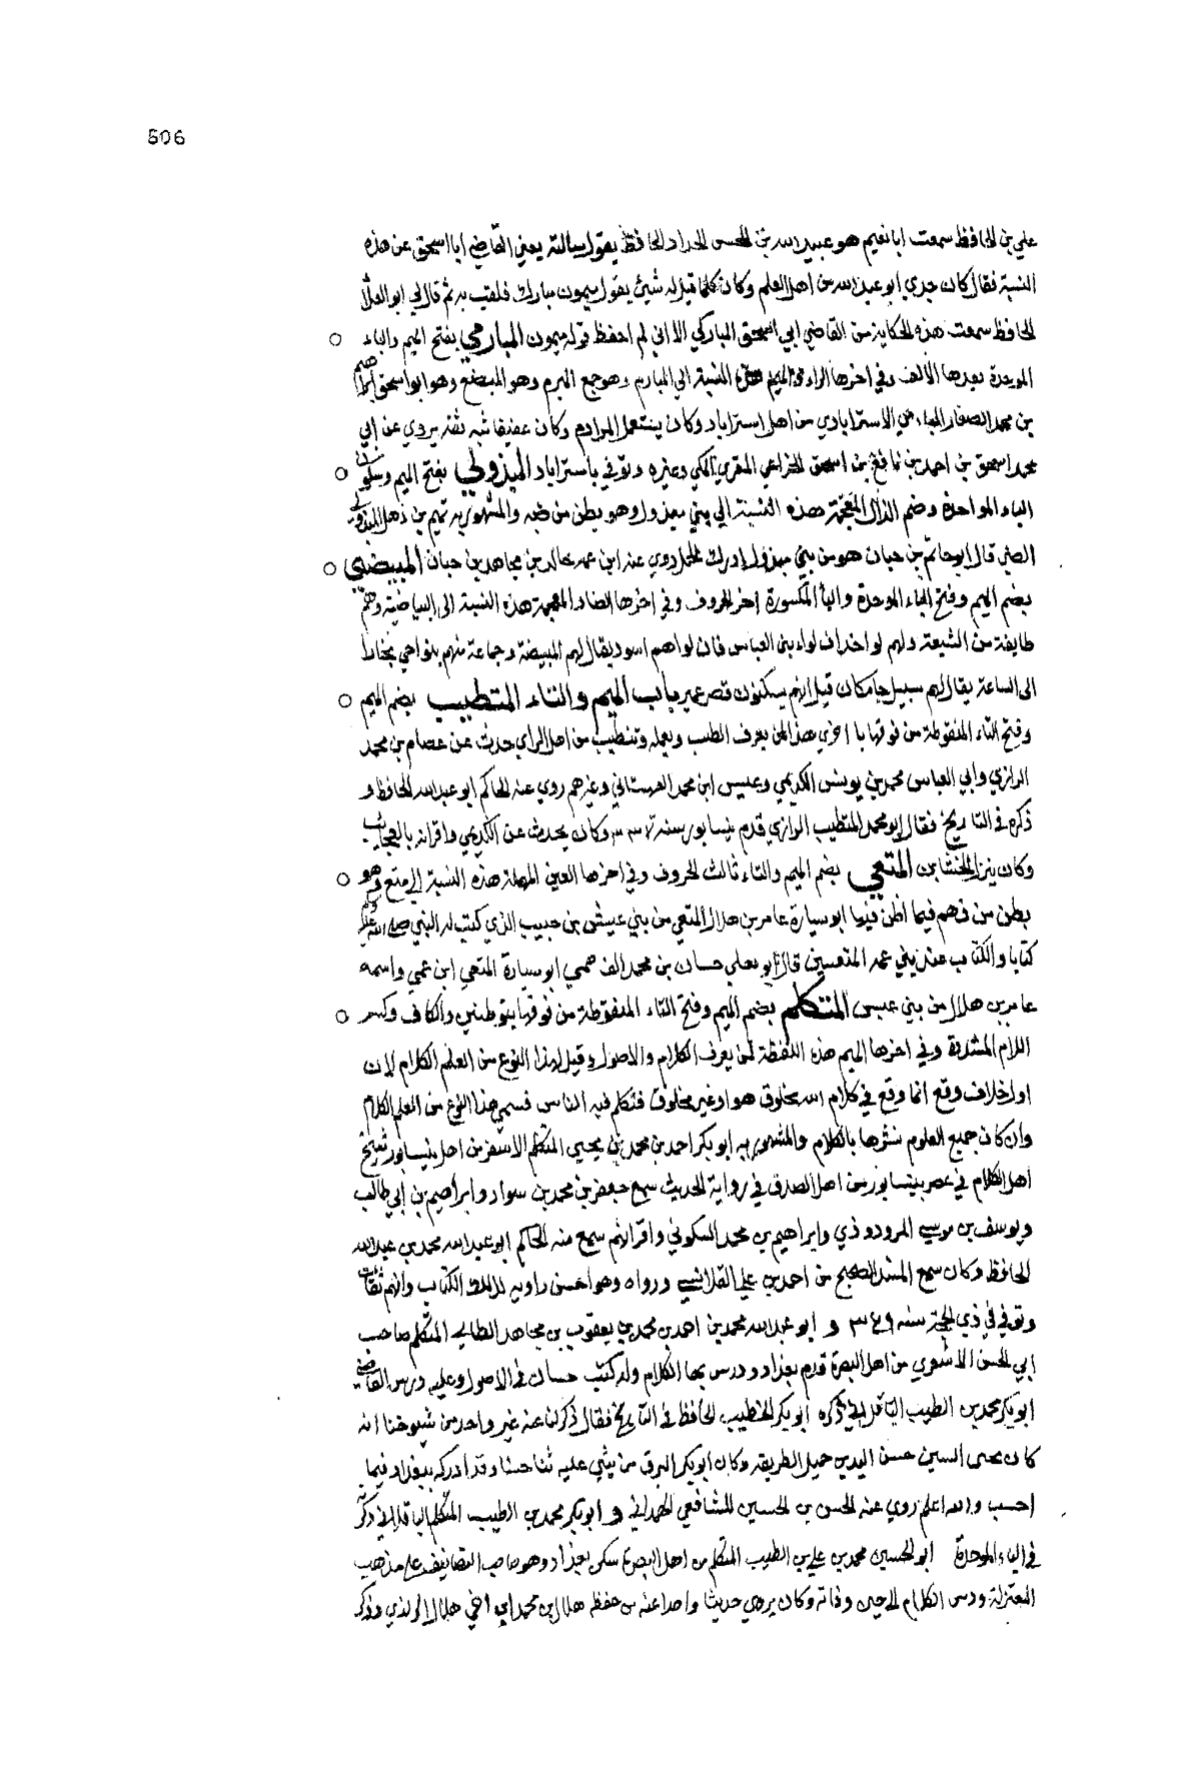 506
علي بن الحافظ سمعت ابا نعيم هو عبيد الله بن الحسن الحداد الحافظ يقول سالته يعني القاضي ابا اسحق عن هذه
النسبة فقال كان جدي ابو عبد الله من اهل العلم وكان كلما قيل له شيئ يقول ميمون مبارك فلقب به ثم قال لي ابو العلا
الحافظ سمعت هذه الحكاية من القاضي ابي اسحق المباركي الا اني لم احفظ قوله ميمون المبارمي بفتح الميم والباء
الموحدة بعدها الالف وفي اخرها الراء والميم هذه النسبة الي المبارم وهو جمع المبرم وهو المبضع وهو ابو اسحق ابراهيم
بن محمد الصفار المبارمي الاستراباذي من اهل استراباد وكان يستعمل المبارم وكان عفيفا شبه ثقة يروي عن ابي
محمد اسحق بن احمد بن نافع بن اسحق الخزاعي المقري المكي وغيره وتوفي باستراباد المبذولي بفتح الميم وسكون
الباء الموحدة وضم الذال المعجمة هذه النسبة الي بني مبذول وهو بطن من ضبه والمشهور به تميم بن ذهل المبذولي
الضبي قال ابو حاتم بن حبان هو من بني مبذول ادرك الجمل روي عنه ابن عمه خالد بن مجاهد بن حبان المبيضي
بضم الميم وفتح الباء الموحدة واليا المكسورة اخر الحروف وفي اخرها الضاد المعجمة هذه النسبة الى البياضية وهم
طايفة من الشيعة ولهم لوا خلاف لواء بني العباس فان لواهم اسود يقال لهم المبيضة وجماعة منهم بنواحي بخارا
الى الساعة يقال لهم سبيل جامكان قيل انهم يسكنون قصر عمير باب الميم والتاء المتطبب بضم الميم
وفتح التاء المنقوطة من فوقها با اخري هذا لمن يعرف الطب ويعمله وتنطبب من اهل الراي حدث عن عصام بن محمد
الرازي وابي العباس محمد بن يونس الكديمي وعيسى ابن محمد القهستاني وغيرهم روي عنه الحاكم ابو عبد الله الحافظ و
ذكره في التاريخ فقال ابو محمد المتطبب الرازي قدم نيسابور سنة ٣٣٧ وكان يحدث عن الكديمي واقرانه بالعجايب
وكان ينزل الخشابن المتعي بضم الميم والتاء ثالث الحروف وفي اخرها العين المهملة هذه النسبة الي متع وهو
بطن من فهم فيما اظن فيها ابو سيارة عامر بن هلال المتعي من بني عيش بن حبيب الذي كتب له النبي صلى الله عليه وسلم
كتابا والكتاب عند بني عمه المتعيين قال ابو يعلي حسان بن محمد الفهمي ابو سيارة المتعي ابن عمي واسمه
عامر بن هلال من بني عبس المتكلم بضم الميم وفتح التاء المنقوطة من فوقها بنوطين والكاف وكسر
اللام المشددة وفي اخرها الميم هذه اللفظة لمن يعرف الكلام والاصول وقيل لهذا النوع من العلم الكلام لان
اول خلاف وقع انما وقع في كلام الله مخلوق هو او غير مخلوق فتكلم فيه الناس فسمي هذا النوع من العلم الكلام
وان كان جميع العلوم نشرها بالكلام والمشهور به ابو بكر احمد بن محمد بن يحيى المتكلم الاشقر من اهل نيسابور شيخ
اهل الكلام في عصره بنيسابور من اهل الصدق في رواية الحديث سمع جعفر بن محمد بن سوار وابراهيم بن ابي طالب
ويوسف بن موسي المروروذي وابراهيم بن محمد السكوني واقرانهم سمع منه الحاكم ابو عبد الله محمد بن عبد الله
الحافظ وكان سمع المسند الصحيح من احمد بن علي القلانسي ورواه وهو احسن راويه لذلك الكتاب وانهم ثقات
وتوفي في ذي الحجة سنه ٣٤٩ و ابو عبد الله محمد بن احمد بن محمد بن يعقوب بن مجاهد الطائي المتكلم صاحب
ابي الحسن الاشعري من اهل البصرة قدم بغداد ودرس بها الكلام وله كتب حسان في الاصول وعليه درس القاضي
ابو بكر محمد بن الطيب الباقلاني ذكره ابو بكر الخطيب الحافظ في التاريخ فقال ذكر لنا عنه غير واحد من شيوخنا انه
كان يحى السين حسن اليدين جميل الطريقه وكان ابو بكر البرقاني يثني عليه ثنا حسنا وقد ادركه ببغداد فيما
احسب والله اعلم روي عنه الحسن بن الحسين الشافعي الهمداني و ابو بكر محمد بن الطيب المتكلم الباقلاني ذكر
في الباء الموحدة ابو الحسين محمد بن علي بن الطيب المتكلم من اهل البصرة سكن بغداد وهو صاحب التصانيف علي مذهب
المعتزلة ودرس الكلام الي حين وفاته وكان يروي حديثا واحدا عنه من حفظه هلال بن محمد ابن اخي هلال الراي وذكر